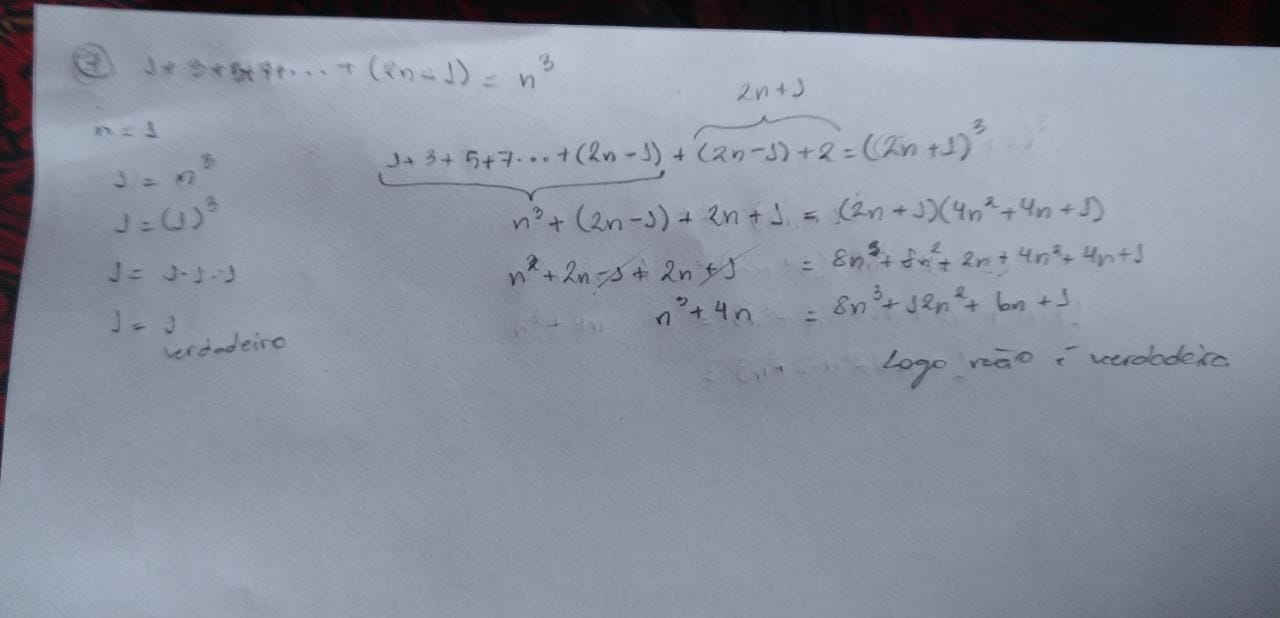 7 1+3+5+7+...+(2n-1) = n³
n=1
1 = n³
1 = (1)³
1 = 1·1·1
1 = 1
verdadeiro
2n+1
1+3+5+7...+(2n-1)+(2n-1)+2=((2n+1)³
n³+(2n-1)+2n+1 = (2n+1)(4n²+4n+1)
n³+2n-1+2n+1 = 8n³+8n²+2n+4n²+4n+1
n³+4n = 8n³+12n²+6n+1
Logo não é verdadeira